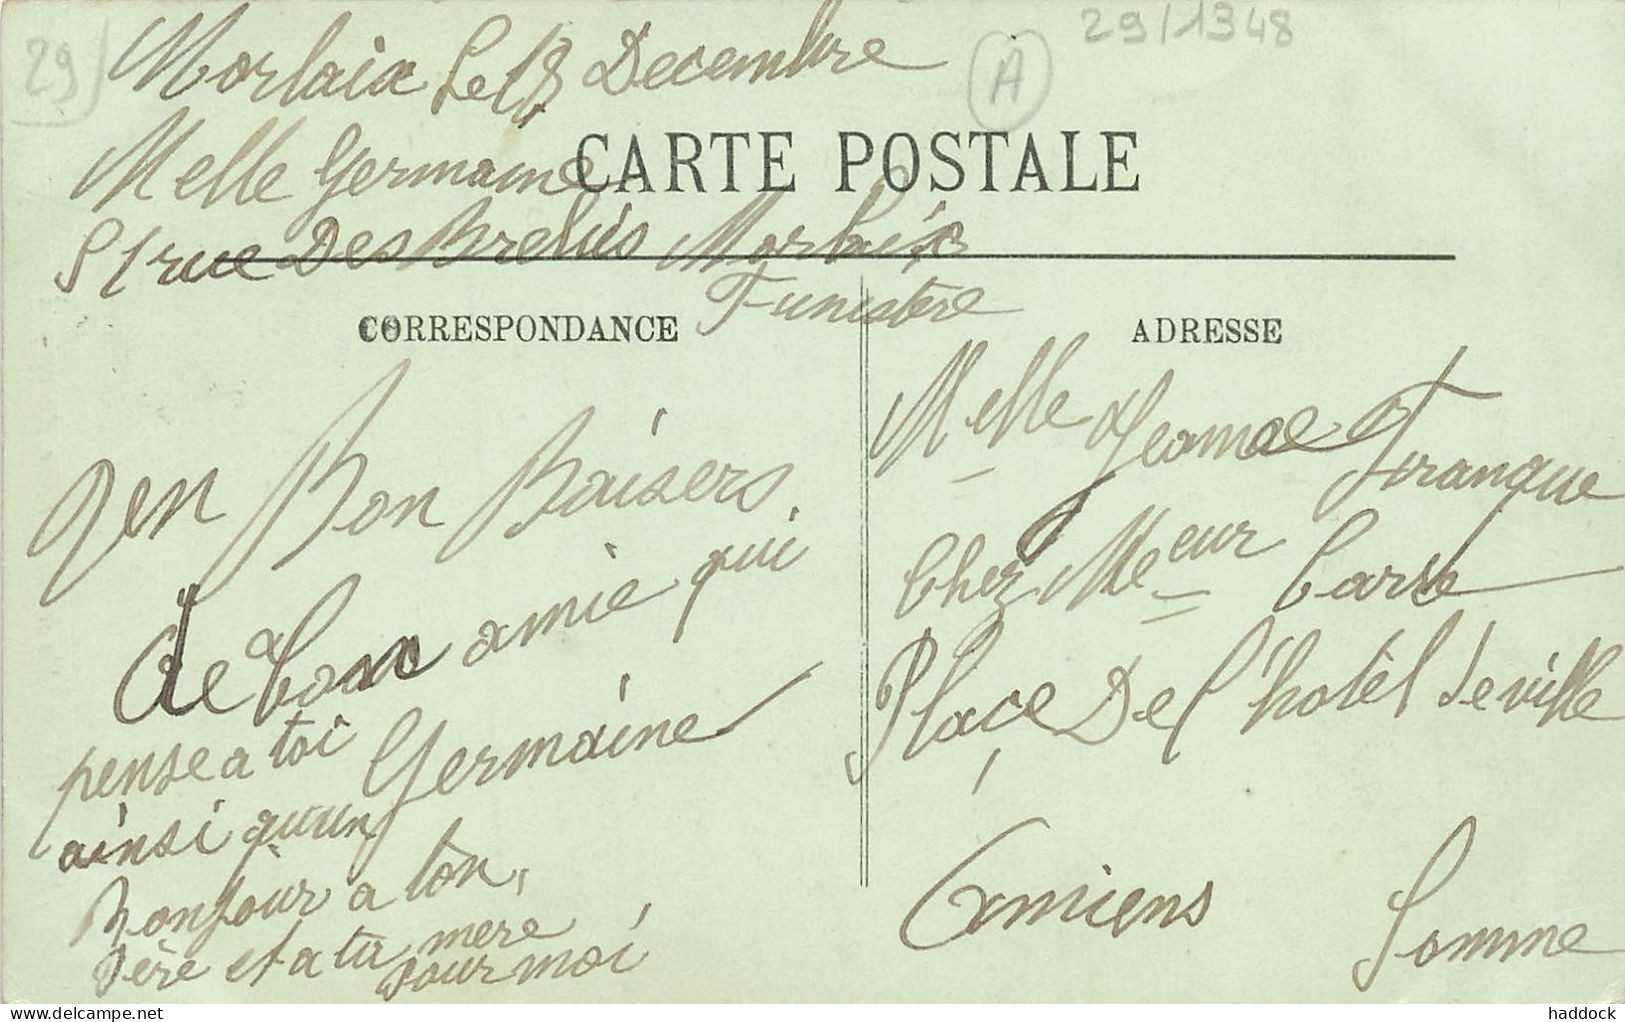 29/
29/1348
A
Morlaix Le 18 Decembre
Melle Germaine
51 rue Des Brebis Morlaix
Funistère
CARTE POSTALE
CORRESPONDANCE
ADRESSE
en Bon Baisers
de ton amie qui
pense a toi Germaine
ainsi qu'un
Bonjour a ton
Père et a ta mere
pour moi
Melle Jeanne Franque
Chez Meur Carre
Place De l'hotèl de ville
Amiens
Somme
delcampe.net
haddock